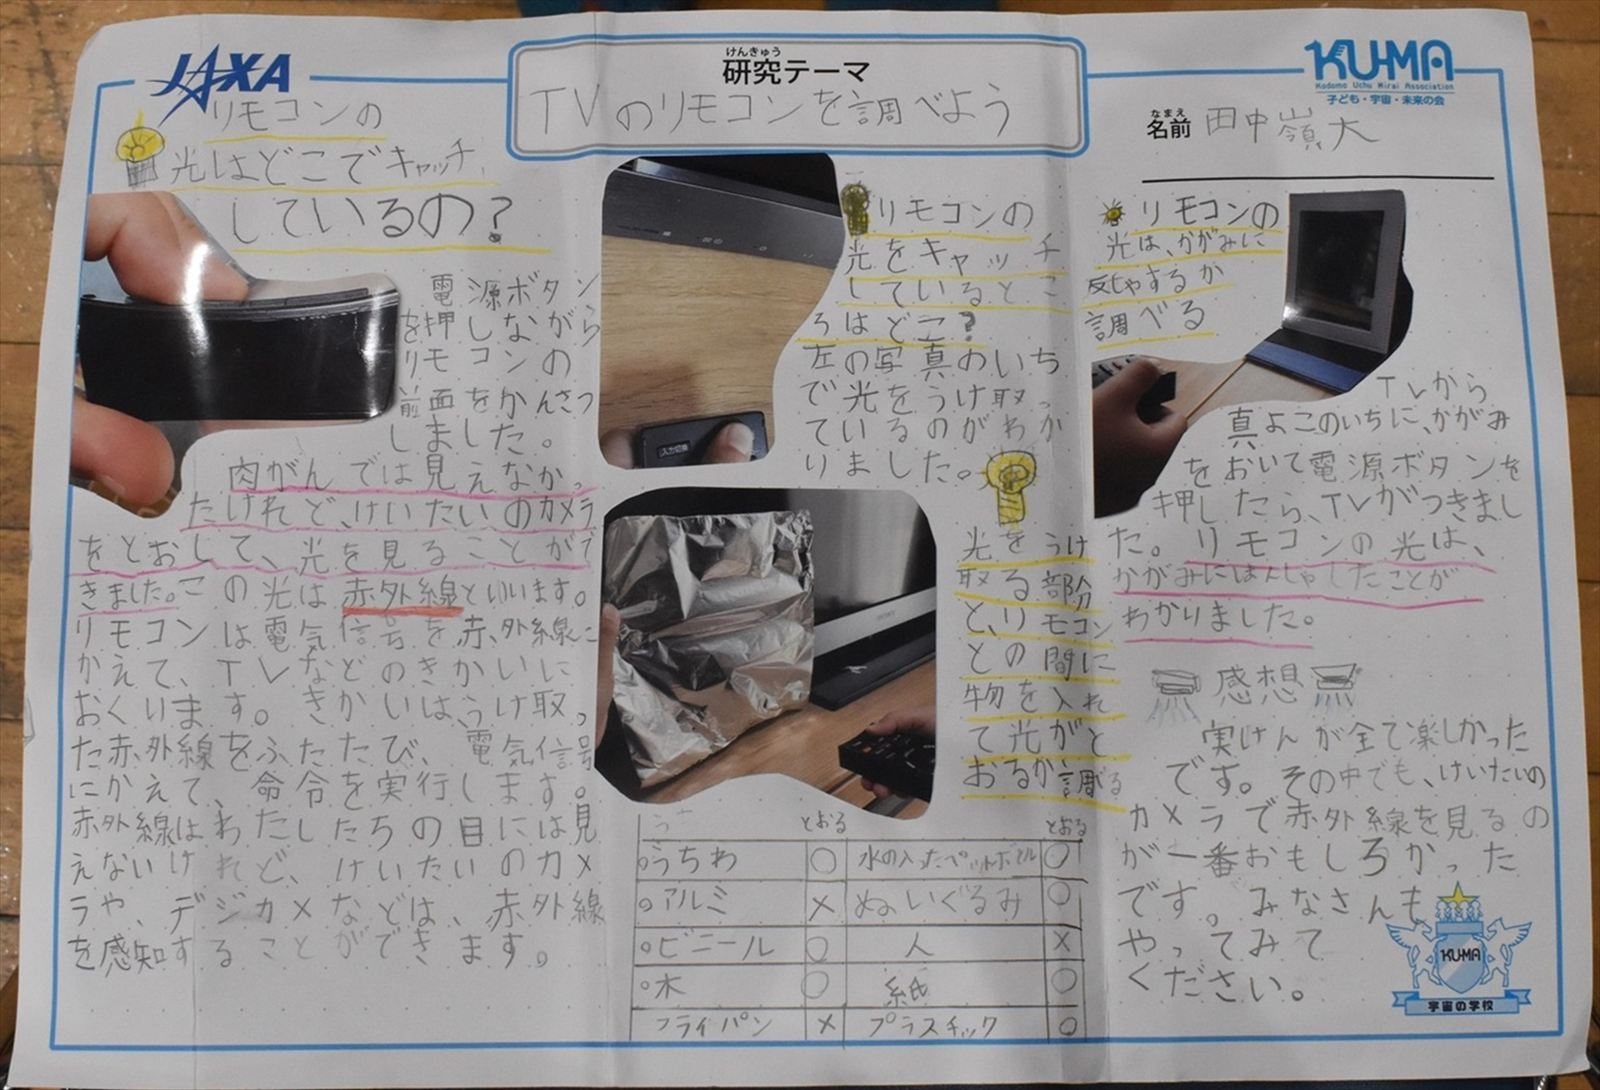 JAXA
けんきゅう
研究テーマ
TVのリモコンを調べよう
KU-MA
Kodomo Uchu Mirai Association
子ども・宇宙・未来の会
なまえ
名前 田中嶺大
リモコンの
光はどこでキャッチ
しているの?
電源ボタン
を押しながら
リモコンの
前面をかんさつ
しました。
肉がんでは見えなかっ
たけれど、けいたいのカメラ
をとおして、光を見ることがで
きました。この光は赤外線といいます。
リモコンは電気信号を赤外線に
かえて、TVなどのきかいに
おくります。きかいは、うけ取っ
た赤外線をふたたび、電気信号
にかえて、命令を実行します。
赤外線はわたしたちの目には見
えないけれど、けいたいのカメ
ラや、デジカメなどは、赤外線
を感知することができます。
入力切換
リモコンの
光をキャッチ
しているとこ
ろはどこ?
左の写真のいち
で光をうけ取っ
ているのがわか
りました。
SONY
光をうけ
取る部分
と、リモコン
との間に
物を入れ
て光がと
おるか調べる
とおる とおる
うちわ ○ 水の入ったペットボトル ○
アルミ × ぬいぐるみ ○
ビニール ○ 人 ×
木 ○ 紙 ○
フライパン × プラスチック ○
リモコンの
光は、かがみに
反しゃするか
調べる
TVから
真よこのいちに、かがみ
をおいて電源ボタンを
押したら、TVがつきまし
た。リモコンの光は、
かがみにはんしゃしたことが
わかりました。
感想
実けんが全て楽しかった
です。その中でも、けいたいの
カメラで赤外線を見るの
が一番おもしろかった
です。みなさんも
やってみて
ください。
KU-MA
宇宙の学校